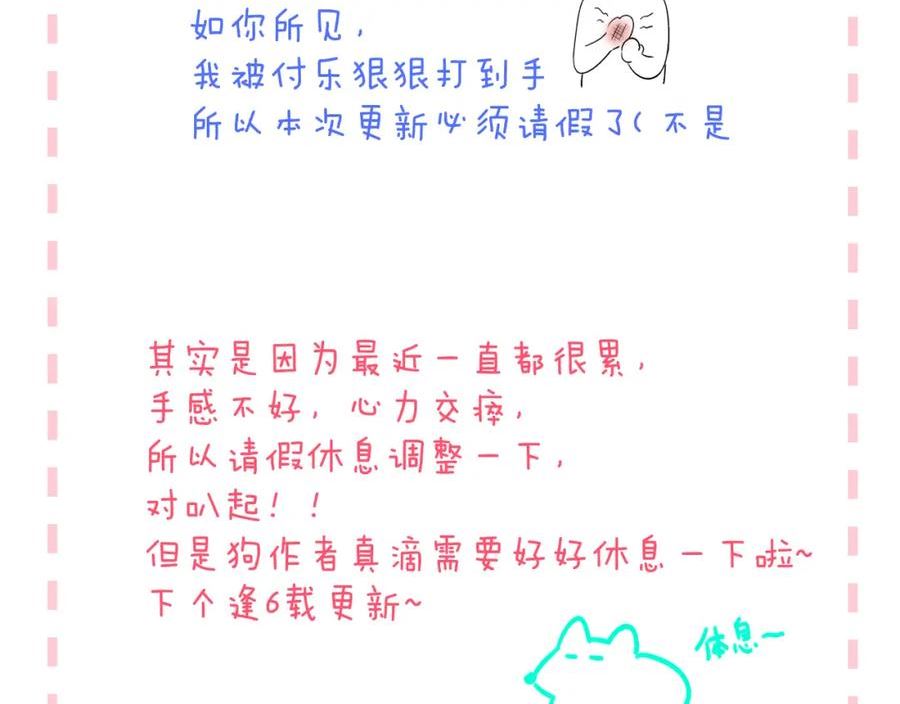 如你所见,
我被付乐狠狠打到手
所以本次更新必须请假了(不是
其实是因为最近一直都很累,
手感不好,心力交瘁,
所以请假休息调整一下,
对叭起!!
但是狗作者真滴需要好好休息一下啦~
下个逢6载更新~
休息~